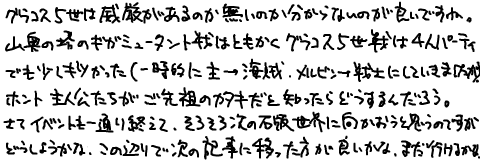 グラコス5世は威厳があるのか無いのか分からないのが良いですね。
山奥の塔のギガミュータント戦はともかくグラコス5世戦は4人パーティ
でも少しも少かった(一時的に主→海賊、メルビン→戦士にしていきましたが
ホント主人公たちがご先祖のカタキだと知ったらどうするんだろう。
さてイベントも一通り終えて、そろそろ次の石版世界に向かおうと思うのですが
どうしようかな、この辺りで次の記事に移った方が良いかな、まだ行けるかな